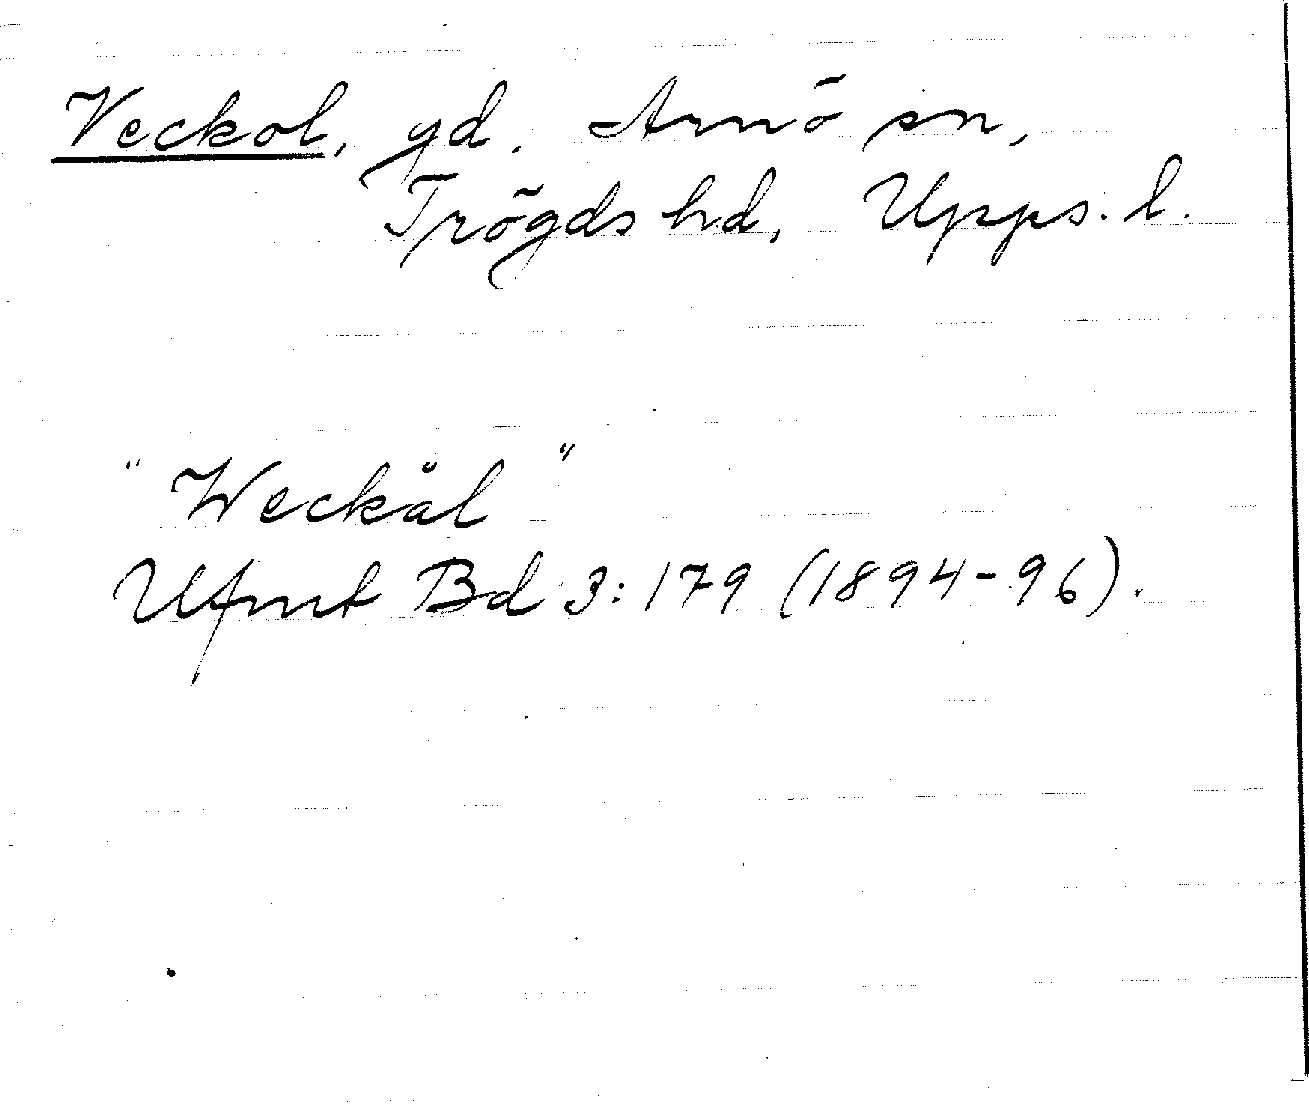 Veckol, gd. Arnö sn,
Trögds hd, Upps. l.
"Weckål"
Ufmt Bd 3:179 (1894-96).